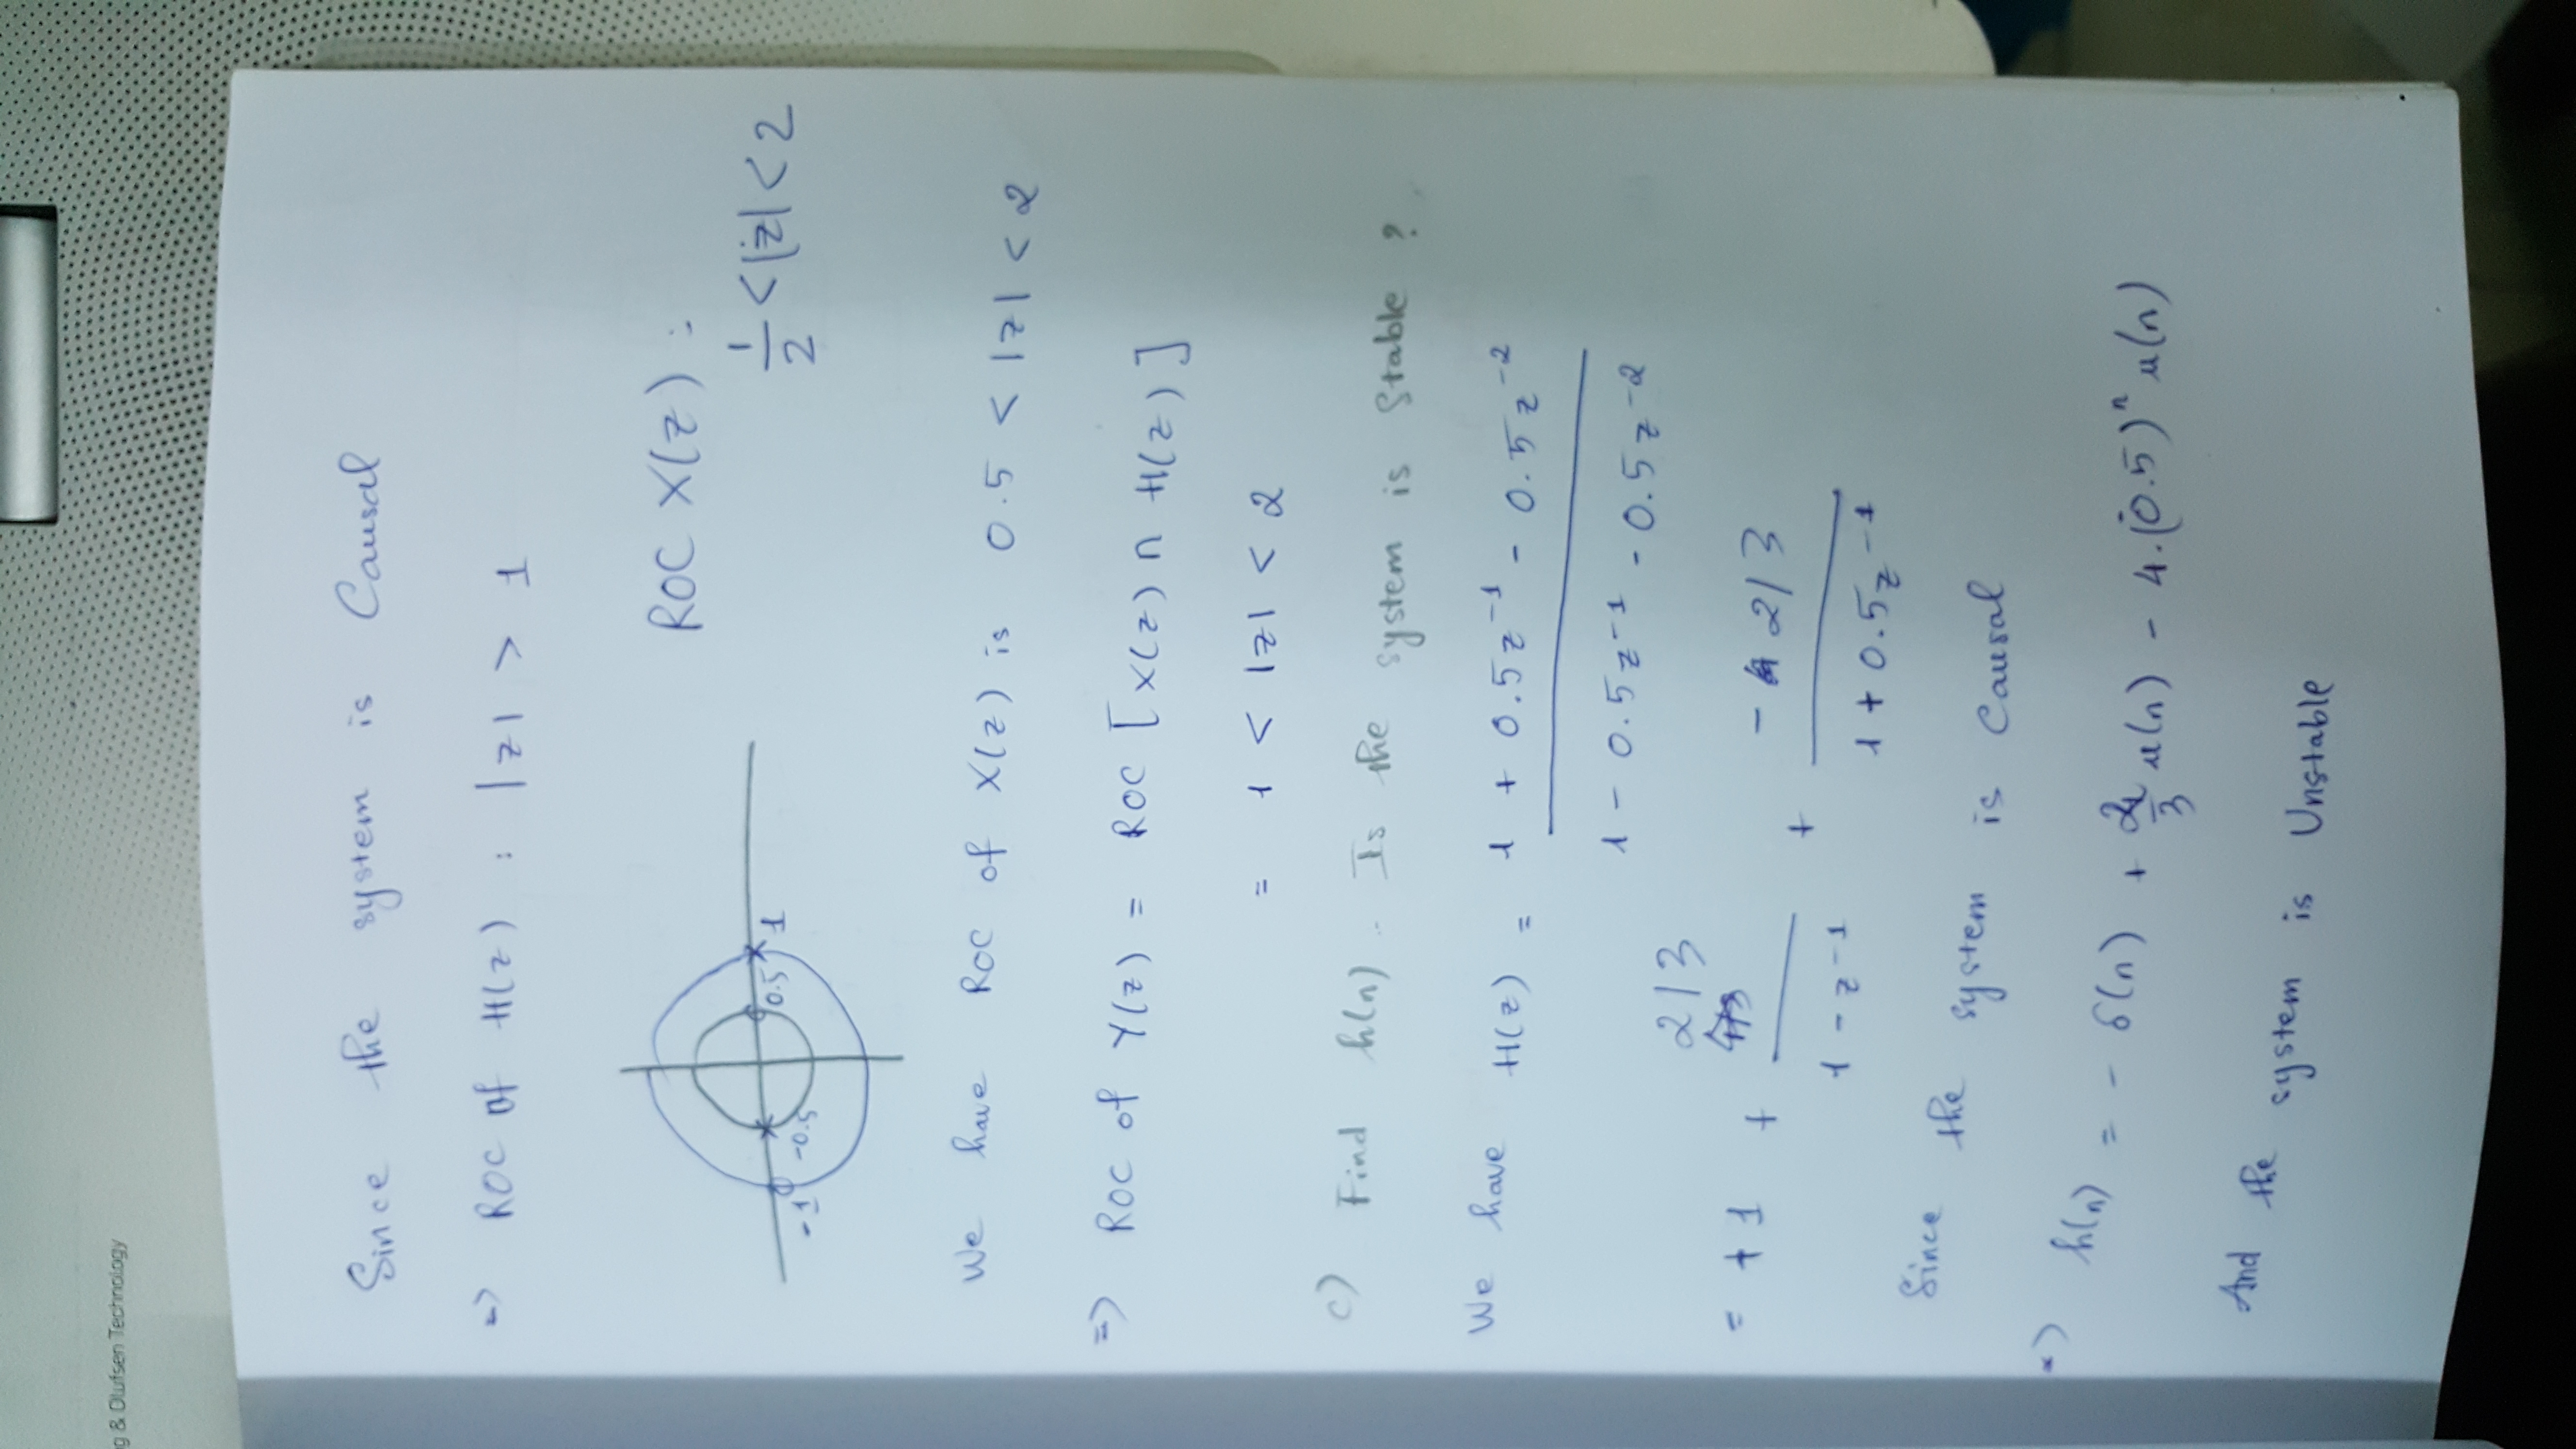 g & Olufsen Technology
Since the system is Causal
=> ROC of H(z) : |z| > 1
ROC X(z) :
1/2 < |z| < 2
-1 -0.5 0.5 1
We have ROC of X(z) is 0.5 < |z| < 2
=> ROC of Y(z) = ROC [X(z) ∩ H(z)]
= 1 < |z| < 2
c) Find h(n). Is the system is Stable ?
We have H(z) = (1 + 0.5z^-1 - 0.5z^-2) / (1 - 0.5z^-1 - 0.5z^-2)
= +1 + (2/3) / (1 - z^-1) + (-2/3) / (1 + 0.5z^-1)
Since the system is Causal
=> h(n) = - δ(n) + 2/3 u(n) - 4.(0.5)^n u(n)
And the system is Unstable